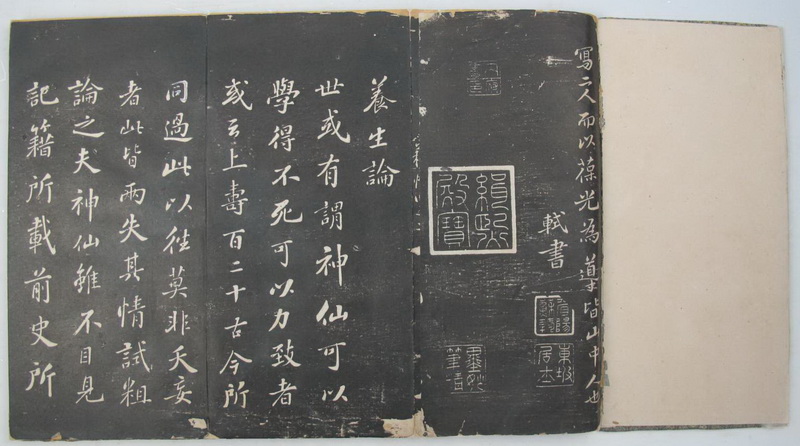 寫之而以葆光為導皆山中人也
軾書
緝熙殿寶
東坡居士
墨妙筆精
養生論
世或有謂神仙可以
學得不死可以力致者
或云上壽百二十古今所
同過此以往莫非夭妄
者此皆兩失其情試粗
論之夫神仙雖不目見
記籍所載前史所